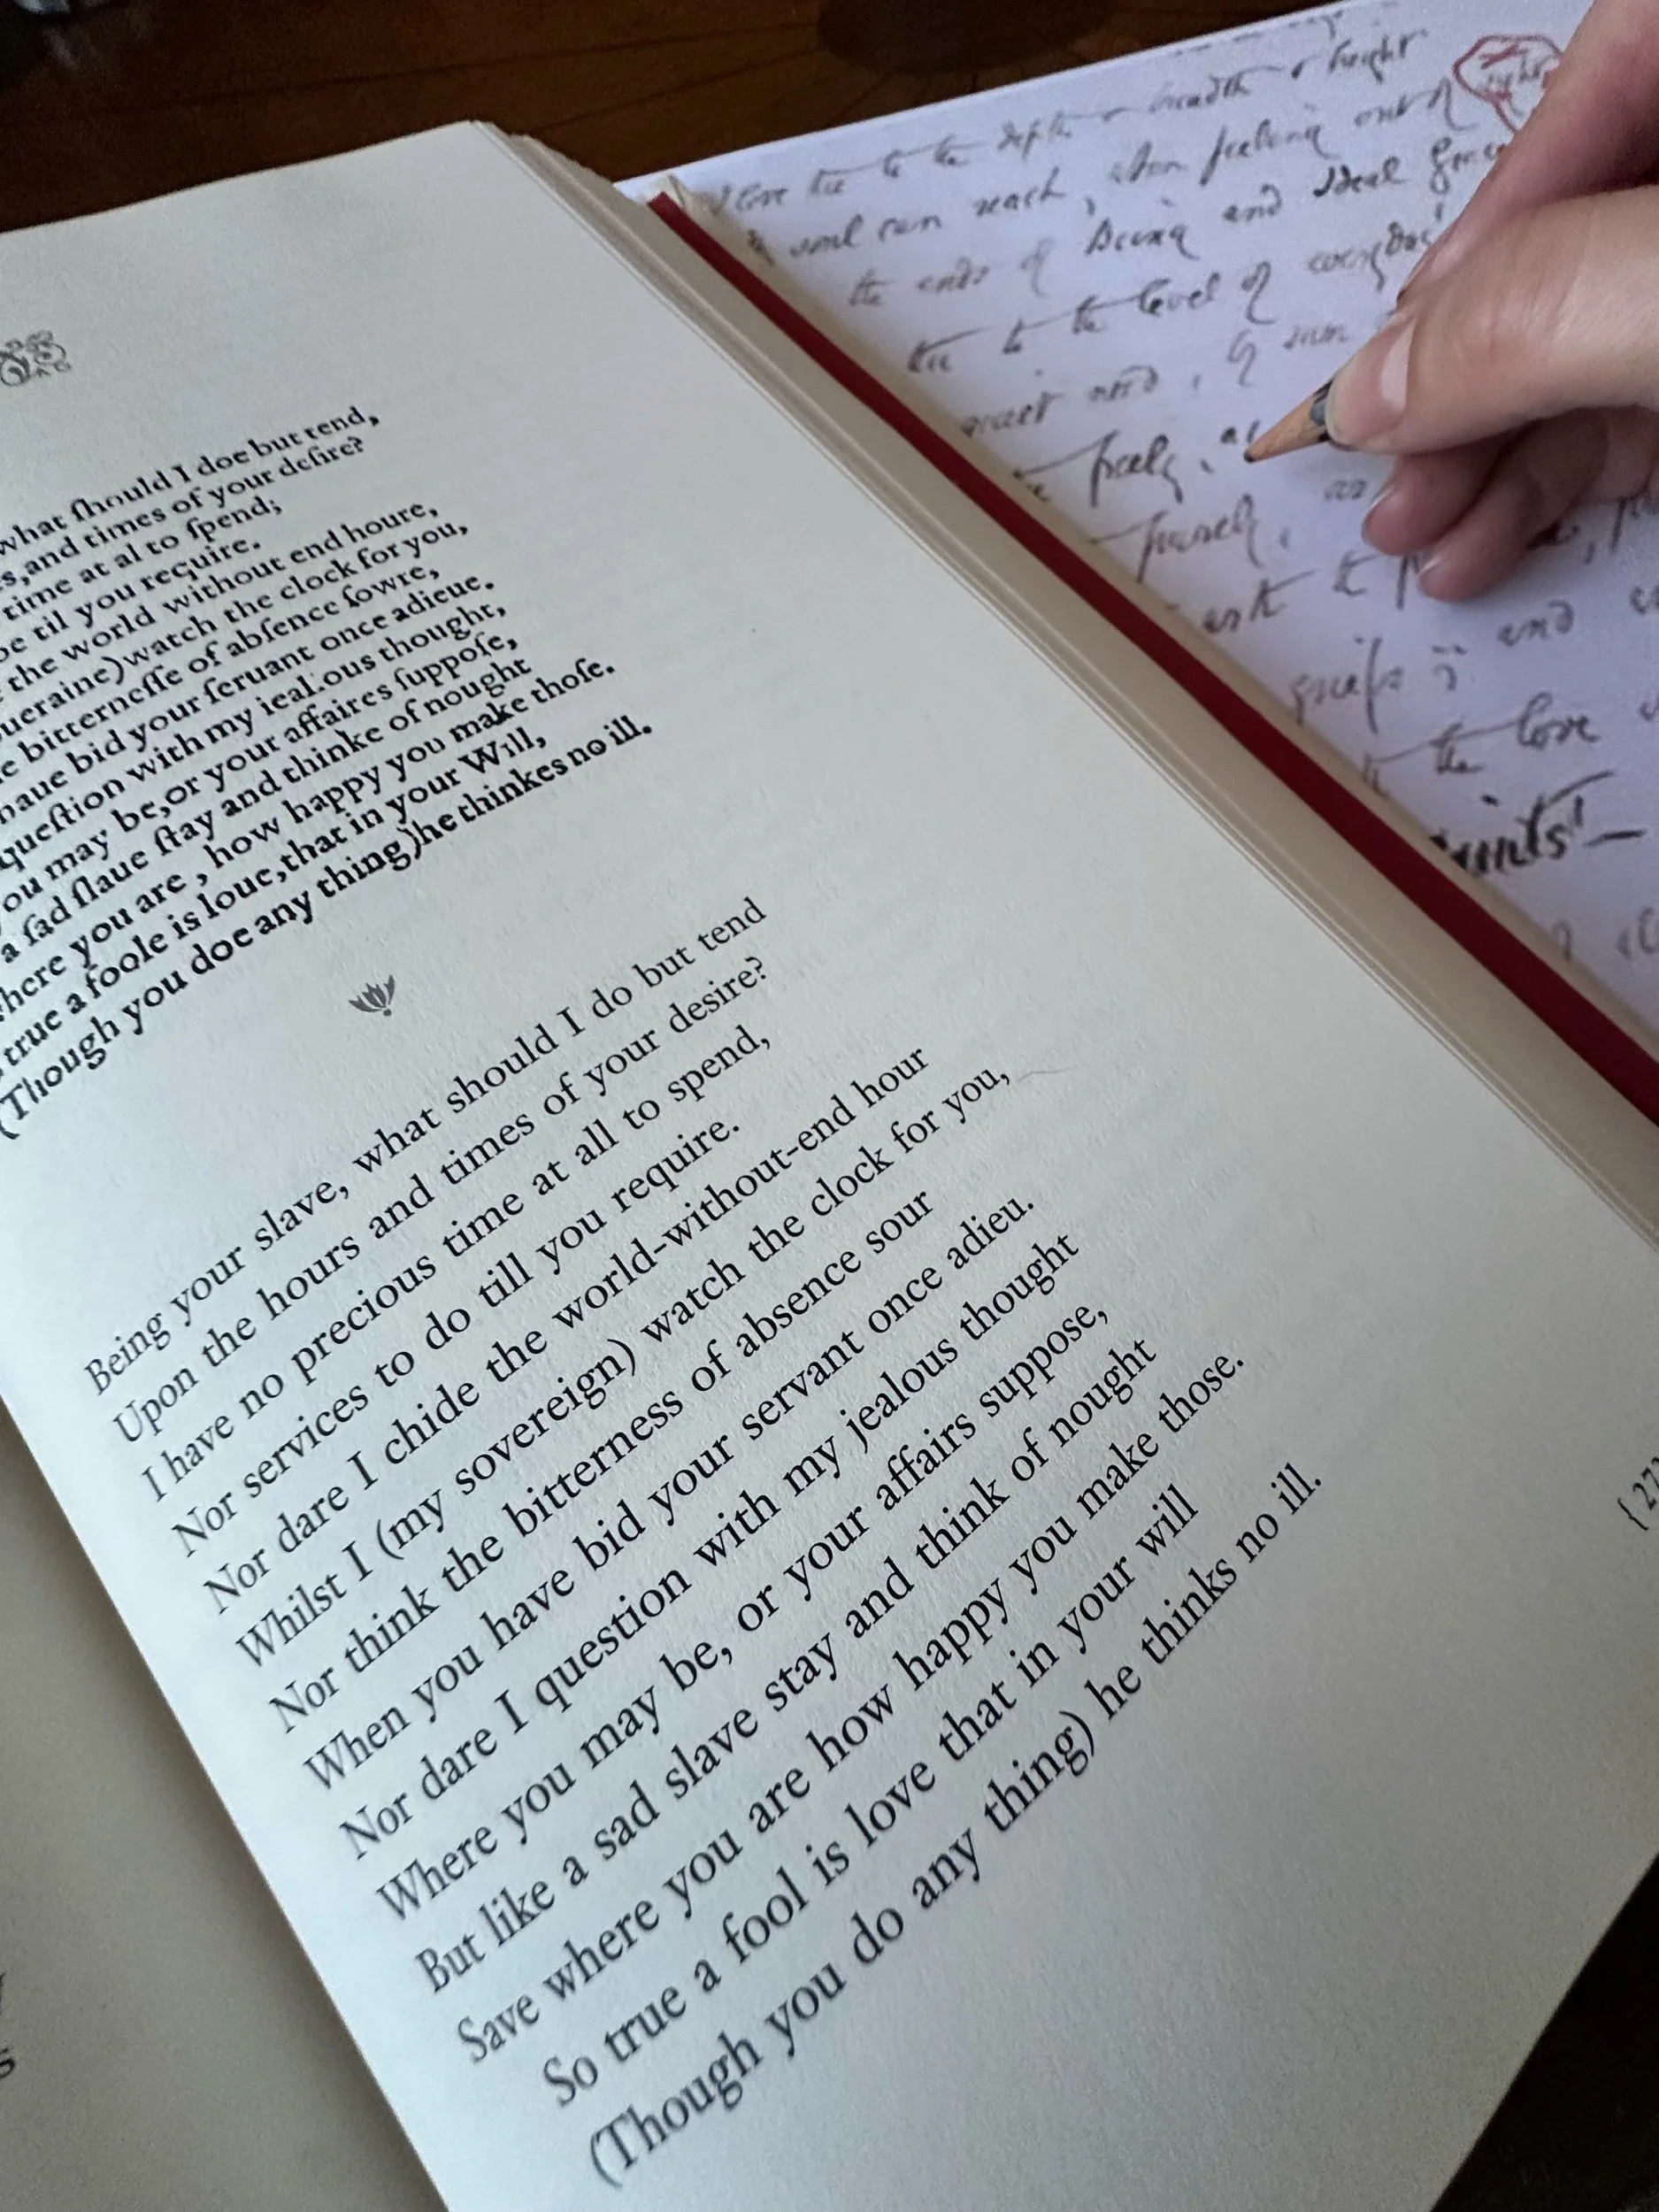 what ſhould I doe but tend,
,and times of your deſire?
time at al to ſpend;
til you require.
the world without end houre,
ueraine)watch the clock for you,
bitterneſſe of abſence ſowre,
haue bid your ſeruant once adieue.
queſtion with my iealous thought,
you may be,or your affaires ſuppoſe,
a ſad ſlaue ſtay and thinke of nought
where you are , how happy you make thoſe.
true a foole is loue,that in your Will,
(Though you doe any thing)he thinkes no ill.
Being your slave, what should I do but tend
Upon the hours and times of your desire?
I have no precious time at all to spend,
Nor services to do till you require.
Nor dare I chide the world-without-end hour
Whilst I (my sovereign) watch the clock for you,
Nor think the bitterness of absence sour
When you have bid your servant once adieu.
Nor dare I question with my jealous thought
Where you may be, or your affairs suppose,
But like a sad slave stay and think of nought
Save where you are how happy you make those.
So true a fool is love that in your will
(Though you do any thing) he thinks no ill.
love thee to the depth & breadth & height
my soul can reach, when feeling out of sight
the ends of Being and Ideal Grace
thee to the level of everyday's
quiet need, by sun
freely, as
purely, as
to
griefs ; and
the love
saints' –